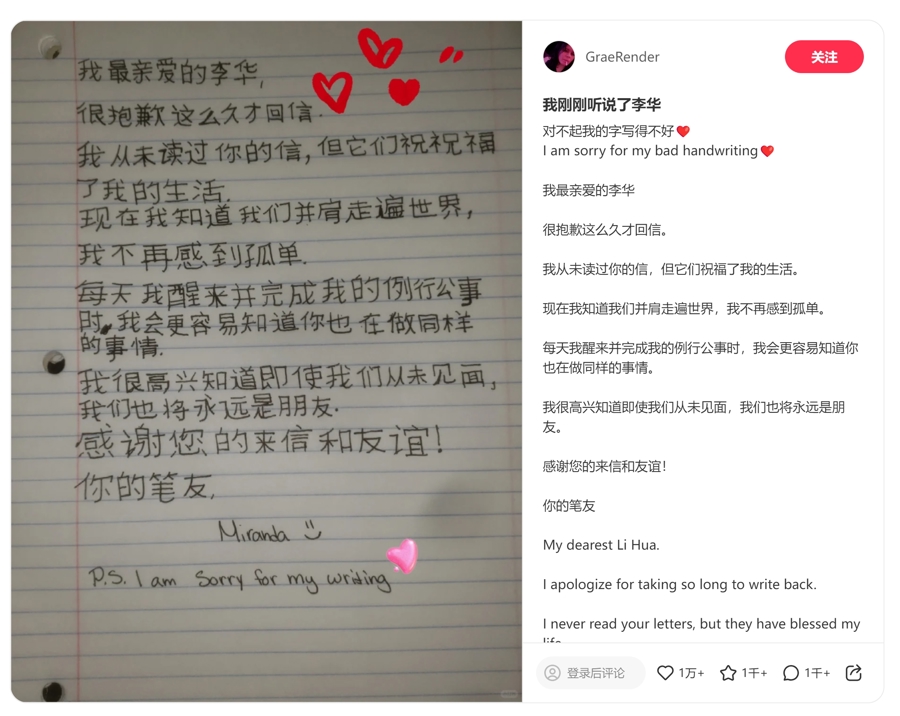 我最亲爱的李华,
很抱歉这么久才回信.
我从未读过你的信,但它们祝祝福
了我的生活.
现在我知道我们并肩走遍世界,
我不再感到孤单.
每天我醒来并完成我的例行公事
时,我会更容易知道你也在做同样
的事情.
我很高兴知道即使我们从未见面,
我们也将永远是朋友.
感谢您的来信和友谊!
你的笔友,
Miranda
P.S. I am Sorry for my writing
GraeRender
关注
我刚刚听说了李华
对不起我的字写得不好❤️
I am sorry for my bad handwriting❤️
我最亲爱的李华
很抱歉这么久才回信。
我从未读过你的信，但它们祝福了我的生活。
现在我知道我们并肩走遍世界，我不再感到孤单。
每天我醒来并完成我的例行公事时，我会更容易知道你
也在做同样的事情。
我很高兴知道即使我们从未见面，我们也将永远是朋
友。
感谢您的来信和友谊！
你的笔友
My dearest Li Hua.
I apologize for taking so long to write back.
I never read your letters, but they have blessed my
life
登录后评论
1万+
1千+
1千+